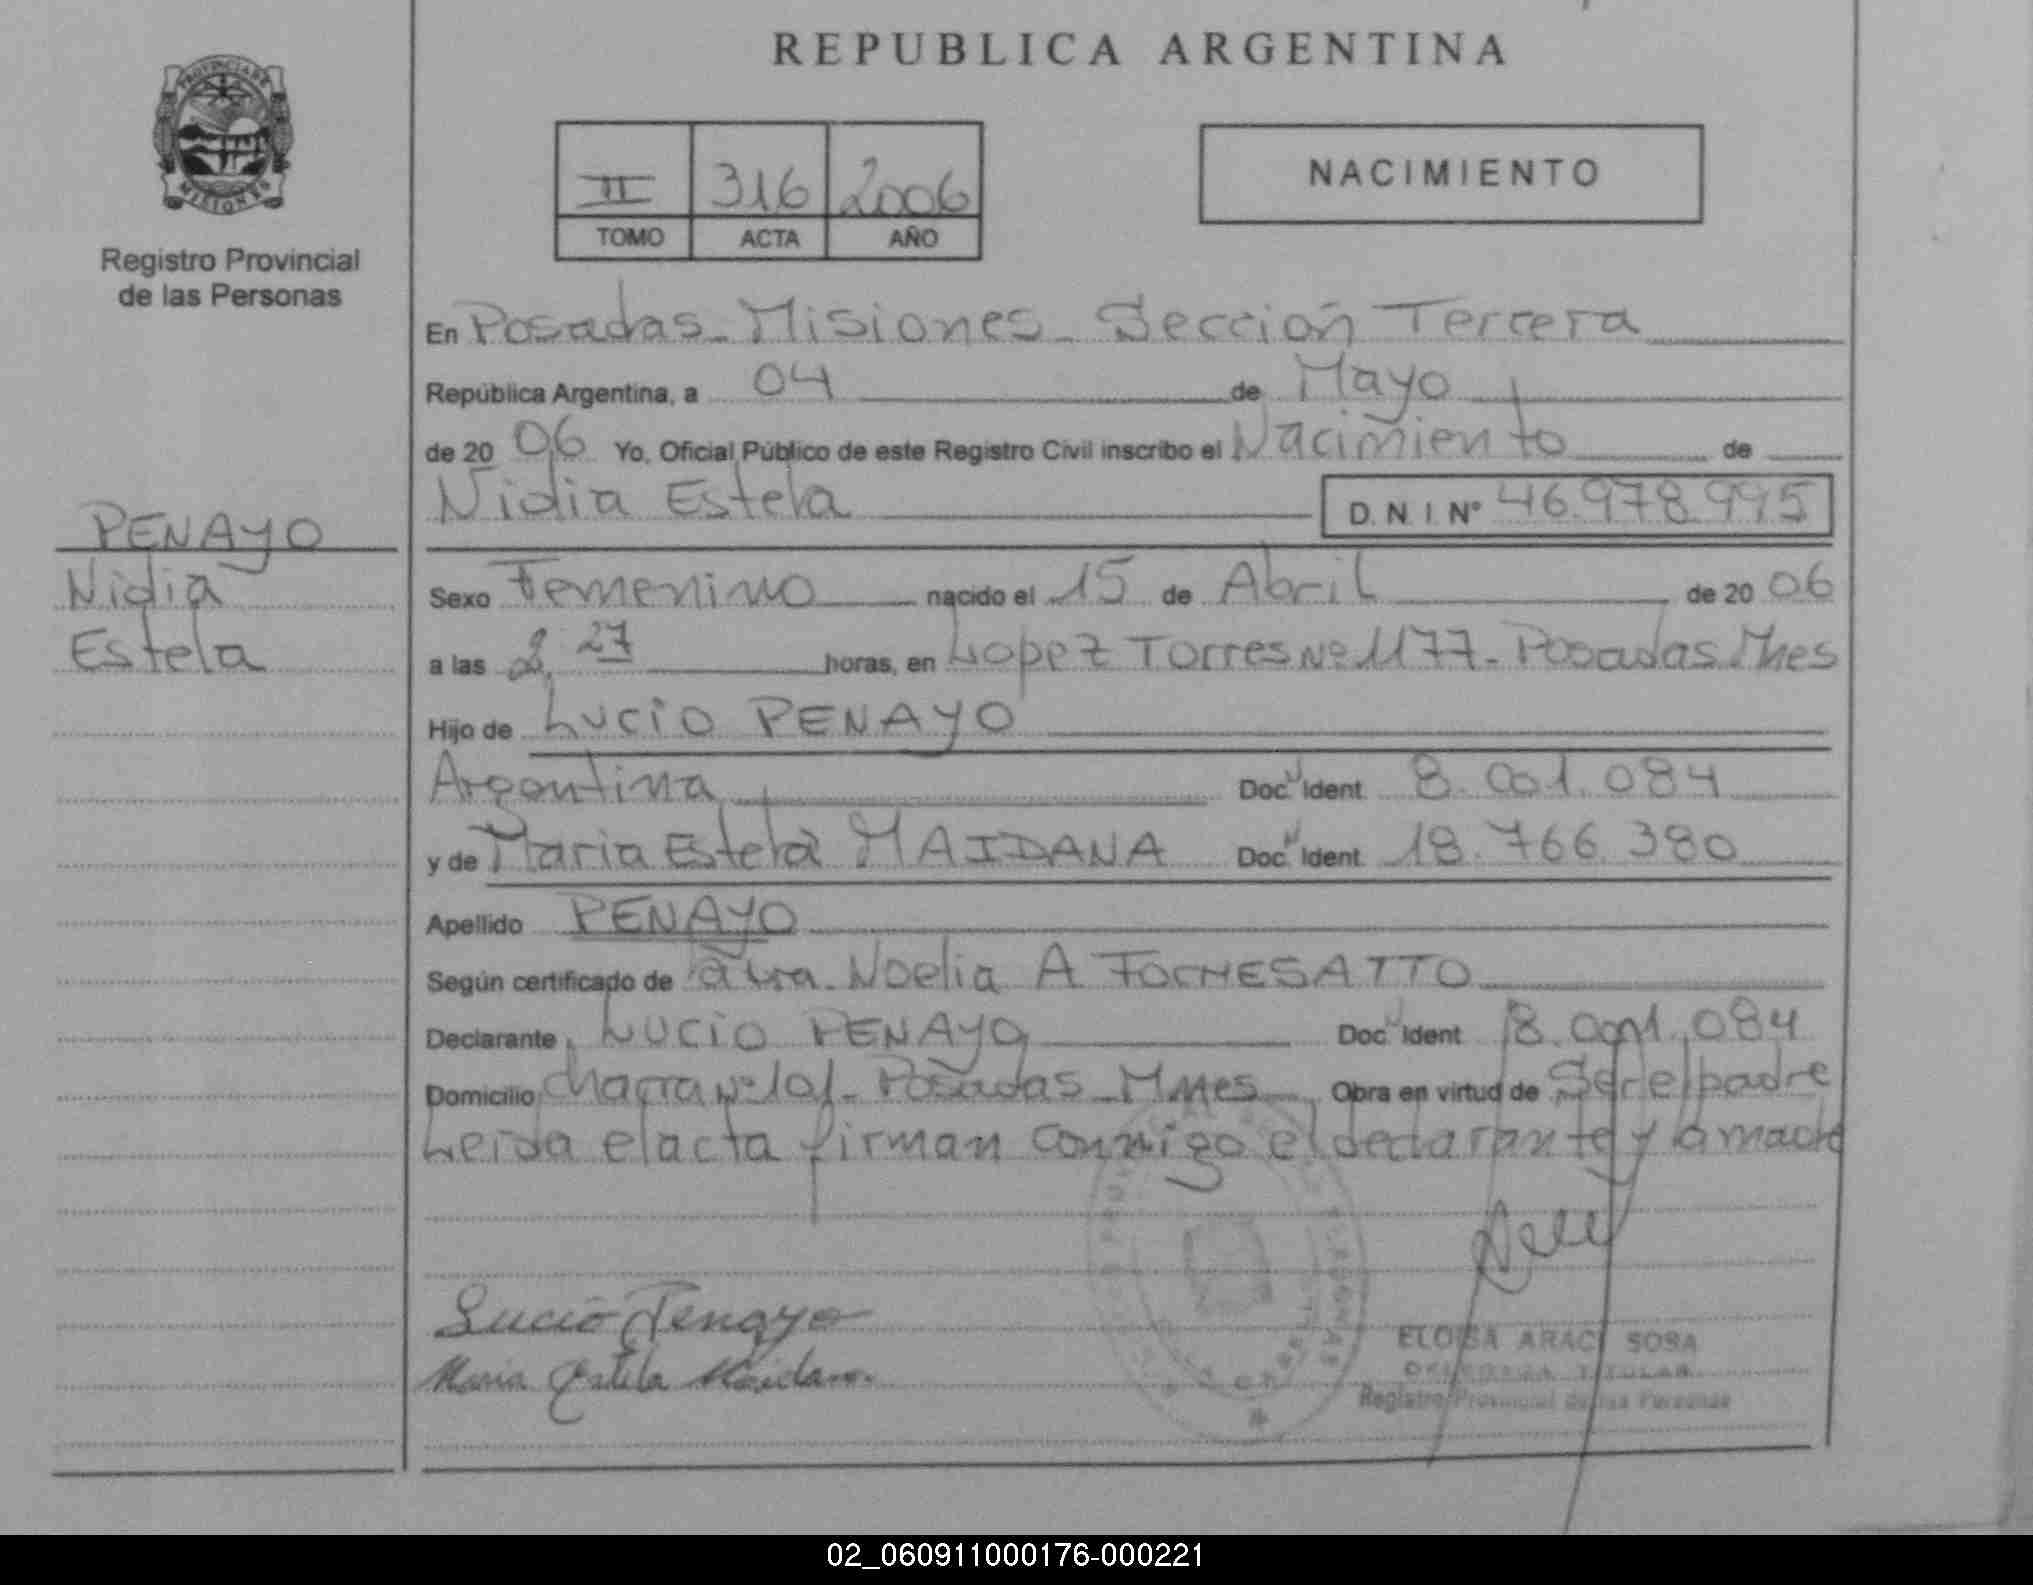 REPUBLICA ARGENTINA
PROVINCIA DE
MISIONES
Registro Provincial
de las Personas
II 316 2006
TOMO ACTA AÑO
NACIMIENTO
En Posadas - Misiones - Sección Tercera
República Argentina, a 04 de Mayo
de 20 06 Yo, Oficial Público de este Registro Civil inscribo el Nacimiento de
Nidia Estela D.N.I. Nº 46.978.995
PENAYO
Nidia
Estela
Sexo Femenino nacido el 15 de Abril de 20 06
a las 2,27 horas, en Lopez Torres Nº 1177 - Posadas Mnes
Hijo de Lucio PENAYO
Argentina Doc. Ident. 8.001.084
y de Maria Estela MAIDANA Doc. Ident. 18.766.380
Apellido PENAYO
Según certificado de Noelia A
Declarante Lucio PENAYO Doc. Ident 8.001.084
Domicilio Chacra Nº 101 - Posadas - Mnes Obra en virtud de Ser el padre
Leida el acta firman conmigo el declarante y la madre
Lucio Penayo
Maria Estela Maidana.
ELOISA ARACI SOSA
TITULAR
Registro Provincial de las Personas
02_060911000176-000221